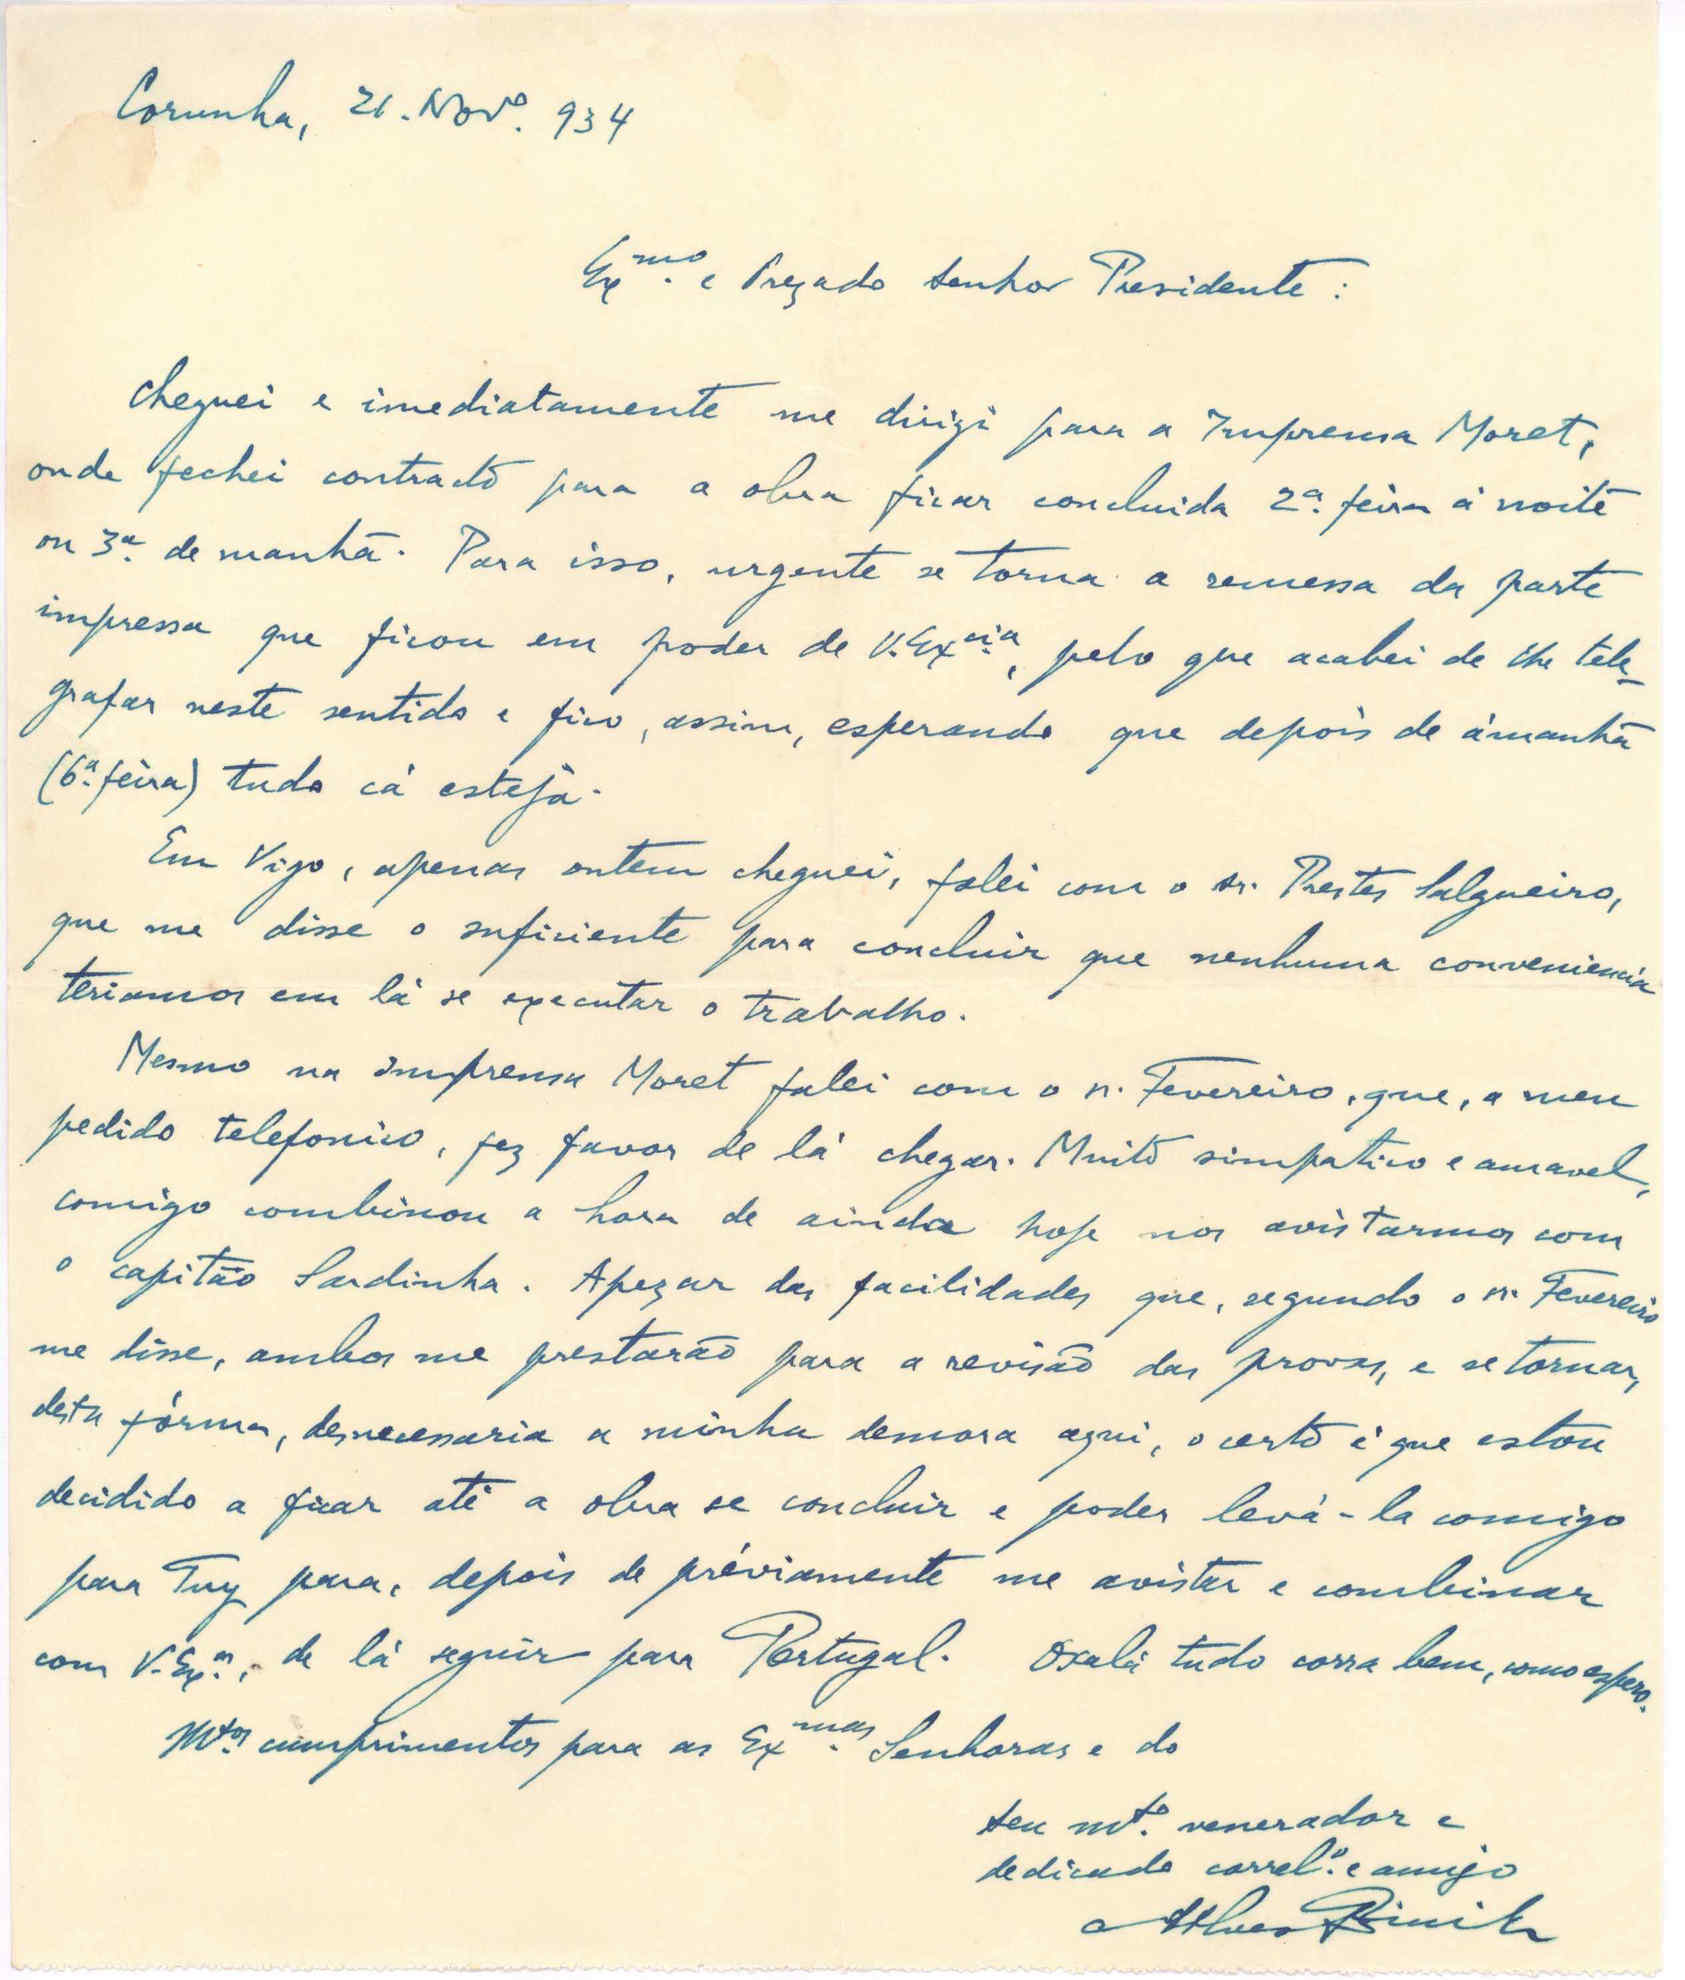 Corunha, 21. Novº. 934
Exmo. e Prezado Senhor Presidente:
Cheguei e imediatamente me dirigi para a Imprensa Moret,
onde fechei contracto para a obra ficar concluida 2ª. feira á noite
ou 3ª. de manhã. Para isso, urgente se torna a remessa da parte
impressa que ficou em poder de V. Excia., pelo que acabei de lhe tele-
grafar neste sentido e fico, assim, esperando que depois de ámanhã
(6ª. feira) tudo cá esteja.
Em Vigo, apenas ontem cheguei, falei com o sr. Prestes Salgueiro,
que me disse o suficiente para concluir que nenhuma conveniencia
teriamos em lá se executar o trabalho.
Mesmo na Imprensa Moret falei com o sr. Fevereiro, que, a meu
pedido telefonico, fez favor de lá chegar. Muito simpatico e amavel,
comigo combinou a hora de ainda hoje nos avistarmos com
o capitão Sardinha. Apezar das facilidades que, segundo o sr. Fevereiro
me disse, ambos me prestarão para a revisão das provas, e se tornar,
desta fórma, desnecessaria a minha demora aqui, o certo é que estou
decidido a ficar até a obra se concluir e poder levá-la comigo
para Tuy para, depois de préviamente me avistar e combinar
com V. Exas., de lá seguir para Portugal. Oxalá tudo corra bem, como espero.
Mtos. cumprimentos para as Exmas. Senhoras e do
seu mto. venerador e
dedicado correlº. e amigo
Alves